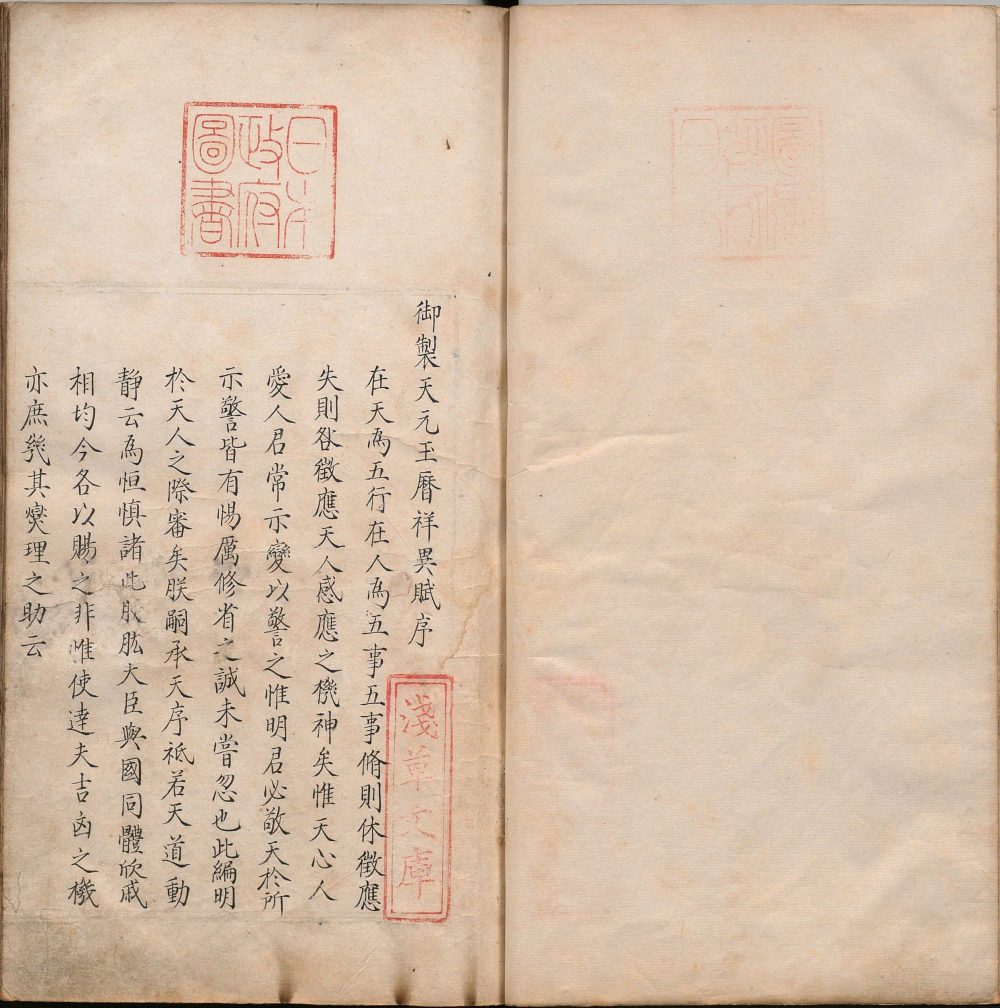 日本
政府
圖書
御製天元玉曆祥異賦序
在天為五行在人為五事五事脩則休徵應
失則咎徵應天人感應之機神矣惟天心人
愛人君常示變以警之惟明君必敬天於所
示警皆有惕厲修省之誠未嘗忽也此編明
於天人之際審矣朕嗣承天序祗若天道動
靜云為恒慎諸此股肱大臣與國同體欣戚
相均今各以賜之非惟使達夫吉凶之機
亦庶幾其燮理之助云
淺草文庫